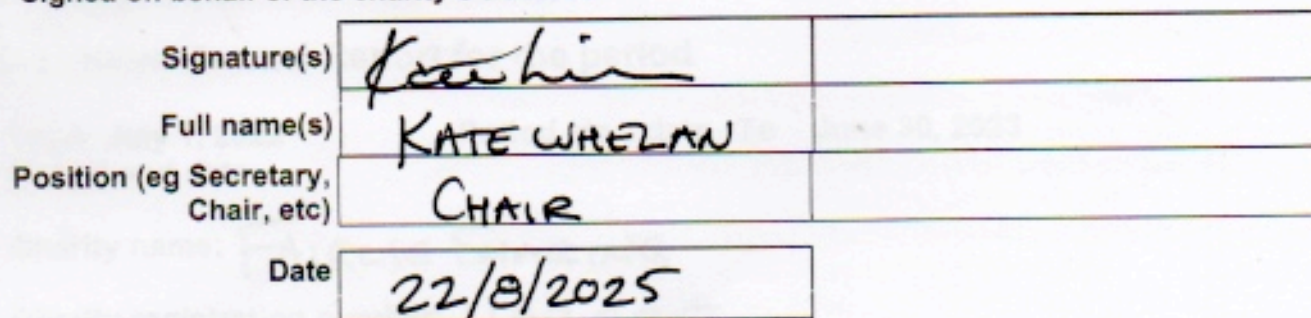 Signature(s)
Full name(s) KATE WHELAN
Position (eg Secretary,
Chair, etc) CHAIR
Date 22/8/2025